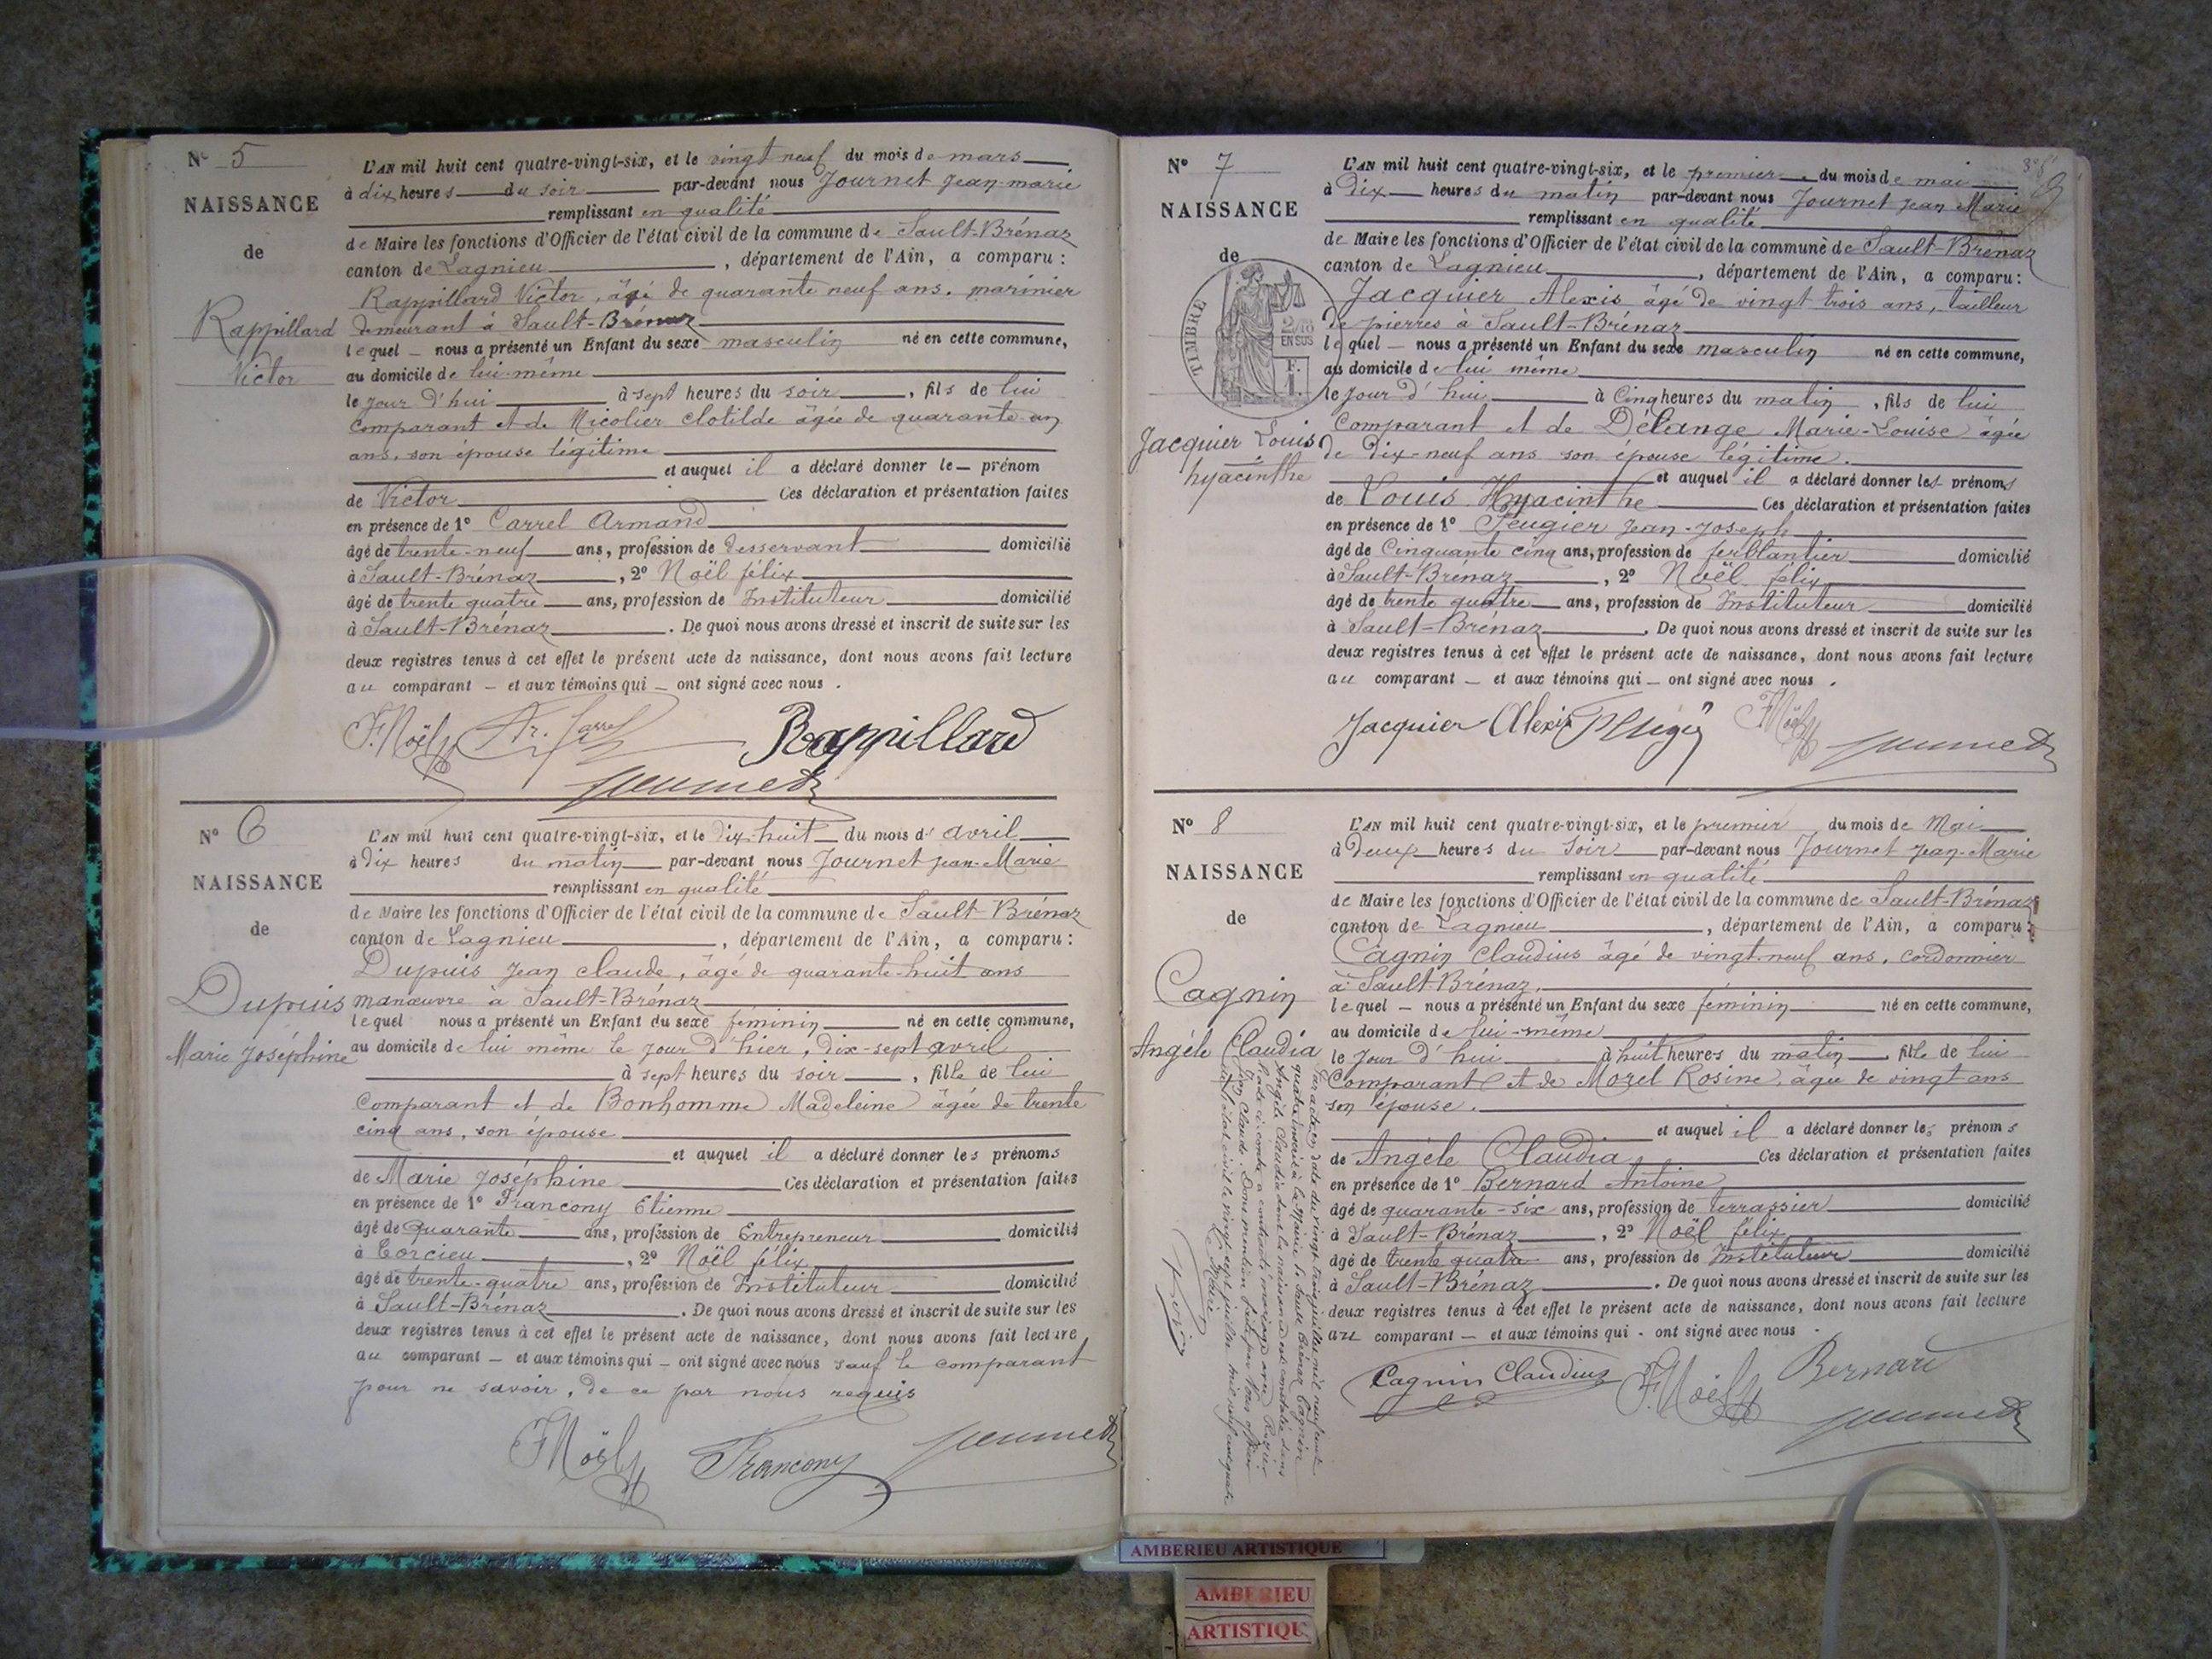 N° 5
NAISSANCE
de
Rappillard
Victor
L'AN mil huit cent quatre-vingt-six, et le vingt neuf du mois de mars
à dix heures du soir par-devant nous Journet Jean-marie
remplissant en qualité
de Maire les fonctions d'Officier de l'état civil de la commune de Sault-Brénaz
canton de Lagnieu, département de l'Ain, a comparu :
Rappillard Victor, âgé de quarante neuf ans. marinier
demeurant à Sault-Brénaz
lequel — nous a présenté un Enfant du sexe masculin né en cette commune,
au domicile de lui-même
le jour d'hui à sept heures du soir, fils de lui
comparant et de Nicolier Clotilde âgée de quarante un
ans, son épouse légitime
et auquel il a déclaré donner le — prénom
de Victor Ces déclaration et présentation faites
en présence de 1° Carrel Armand
âgé de trente-neuf ans, profession de desservant domicilié
à Sault-Brénaz, 2° Noël félix
âgé de trente quatre ans, profession de Instituteur domicilié
à Sault-Brénaz. De quoi nous avons dressé et inscrit de suite sur les
deux registres tenus à cet effet le présent acte de naissance, dont nous avons fait lecture
au comparant — et aux témoins qui — ont signé avec nous.
F. Noël Ar. Carrel Rappillard
Journet
N° 6
NAISSANCE
de
Dupuis
Marie Joséphine
L'AN mil huit cent quatre-vingt-six, et le dix-huit du mois d' avril
à dix heures du matin par-devant nous Journet Jean-Marie
remplissant en qualité
de Maire les fonctions d'Officier de l'état civil de la commune de Sault-Brénaz
canton de Lagnieu, département de l'Ain, a comparu :
Dupuis Jean Claude, âgé de quarante-huit ans
manœuvre à Sault-Brénaz
lequel nous a présenté un Enfant du sexe féminin né en cette commune,
au domicile de lui même le jour d'hier, dix-sept avril
à sept heures du soir, fille de lui
comparant et de Bonhomme Madeleine âgée de trente
cinq ans, son épouse
et auquel il a déclaré donner les prénoms
de Marie Joséphine Ces déclaration et présentation faites
en présence de 1° Francony Etienne
âgé de quarante ans, profession de Entrepreneur domicilié
à Torcieu, 2° Noël félix
âgé de trente-quatre ans, profession de Instituteur domicilié
à Sault-Brénaz. De quoi nous avons dressé et inscrit de suite sur les
deux registres tenus à cet effet le présent acte de naissance, dont nous avons fait lecture
au comparant — et aux témoins qui — ont signé avec nous sauf le comparant
pour ne savoir, de ce par nous requis
F. Noël Francony Journet
N° 7
NAISSANCE
de
TIMBRE
2/10
EN SUS
F.
1.
Jacquier Louis
hyacinthe
L'AN mil huit cent quatre-vingt-six, et le premier du mois de mai
à Dix heures du matin par-devant nous Journet Jean Marie
remplissant en qualité
de Maire les fonctions d'Officier de l'état civil de la commune de Sault-Brénaz
canton de Lagnieu, département de l'Ain, a comparu :
Jacquier Alexis âgé de vingt trois ans, tailleur
de pierres à Sault-Brénaz
lequel — nous a présenté un Enfant du sexe masculin né en cette commune,
au domicile de lui même
le jour d'hui à Cinq heures du matin, fils de lui
comparant et de Délange Marie-Louise âgée
de dix-neuf ans son épouse légitime.
et auquel il a déclaré donner les prénoms
de Louis Hyacinthe Ces déclaration et présentation faites
en présence de 1° Peugier Jean-Joseph
âgé de Cinquante cinq ans, profession de ferblantier domicilié
à Sault-Brénaz, 2° Noël félix
âgé de trente quatre ans, profession de Instituteur domicilié
à Sault-Brénaz. De quoi nous avons dressé et inscrit de suite sur les
deux registres tenus à cet effet le présent acte de naissance, dont nous avons fait lecture
au comparant — et aux témoins qui — ont signé avec nous.
Jacquier Alexis F. Noël Journet
N° 8
NAISSANCE
de
Cagnin
Angéle Claudia
L'AN mil huit cent quatre-vingt-six, et le premier du mois de Mai
à Deux heures du Soir par-devant nous Journet Jean-Marie
remplissant en qualité
de Maire les fonctions d'Officier de l'état civil de la commune de Sault-Brénaz
canton de Lagnieu, département de l'Ain, a comparu :
Cagnin Claudius âgé de vingt-neuf ans, cordonnier
à Sault-Brénaz.
lequel — nous a présenté un Enfant du sexe féminin né en cette commune,
au domicile de lui-même
le jour d'hui à huit heures du matin, fille de lui
Comparant et de Morel Rosine, âgée de vingt ans
son épouse.
et auquel il a déclaré donner les prénoms
de Angéle Claudia Ces déclaration et présentation faites
en présence de 1° Bernard Antoine
âgé de quarante-six ans, profession de terrassier domicilié
à Sault-Brénaz, 2° Noël félix
âgé de trente quatre ans, profession de Instituteur domicilié
à Sault-Brénaz. De quoi nous avons dressé et inscrit de suite sur les
deux registres tenus à cet effet le présent acte de naissance, dont nous avons fait lecture
au comparant — et aux témoins qui - ont signé avec nous.
Cagnin Claudius F. Noël Bernard
Journet
Par acte en date du vingt juillet mil neuf cent
quatre inscrit à la Mairie de Sault Brénaz Cagnin
Angèle Claudia dont la naissance est constatée dans
l'acte ci-contre a contracté mariage avec
Jean Claude. Dont mention faite par Nous officier
de l'état civil le vingt sept juillet mil neuf cent quatre
Le Maire
AMBERIEU ARTISTIQUE
AMBERIEU
ARTISTIQU